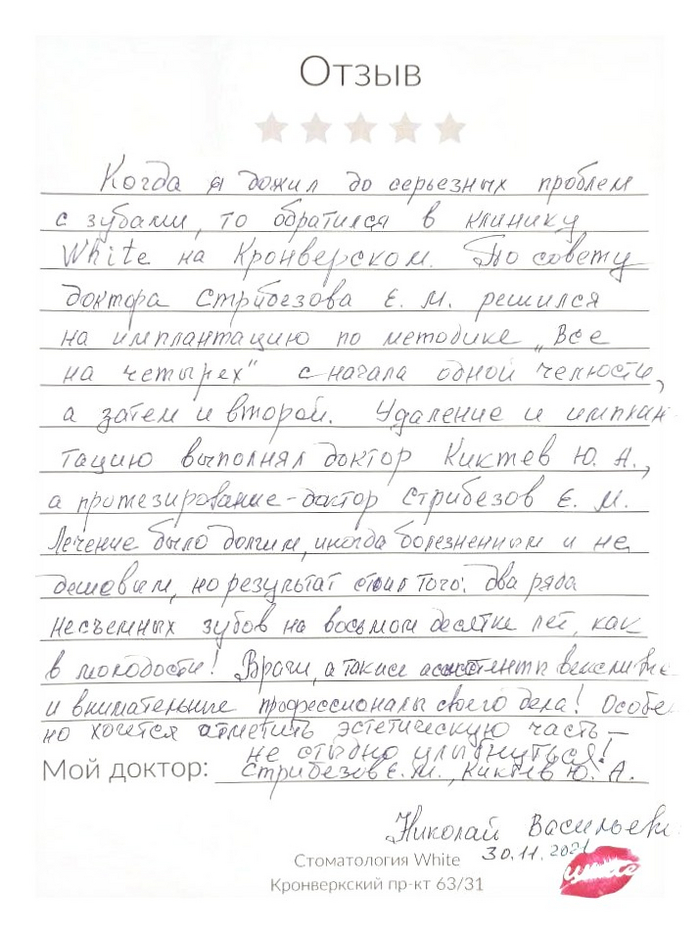 Отзыв
Когда я дожил до серьезных проблем
с зубами, то обратился в клинику
White на Кронверском. По совету
доктора Стрибезова Е. М. решился
на имплантацию по методике „Все
на четырех" сначала одной челюсти,
а затем и второй. Удаление и имплан
тацию выполнял доктор Киктев Ю. А.,
а протезирование - доктор Стрибезов Е. М.
Лечение было долгим, иногда болезненным и не
дешевым, но результат стоил того: два ряда
несъемных зубов на восьмом десятке лет, как
в молодости! Врачи, а также ассистенты вежливые
и внимательные профессионалы своего дела! Особен
но хочется отметить эстетическую часть —
не стыдно улыбнуться!
Мой доктор: Стрибезов Е. М., Киктев Ю. А.
Николай Васильеви
30.11.2021
Стоматология White
Кронверкский пр-кт 63/31
white